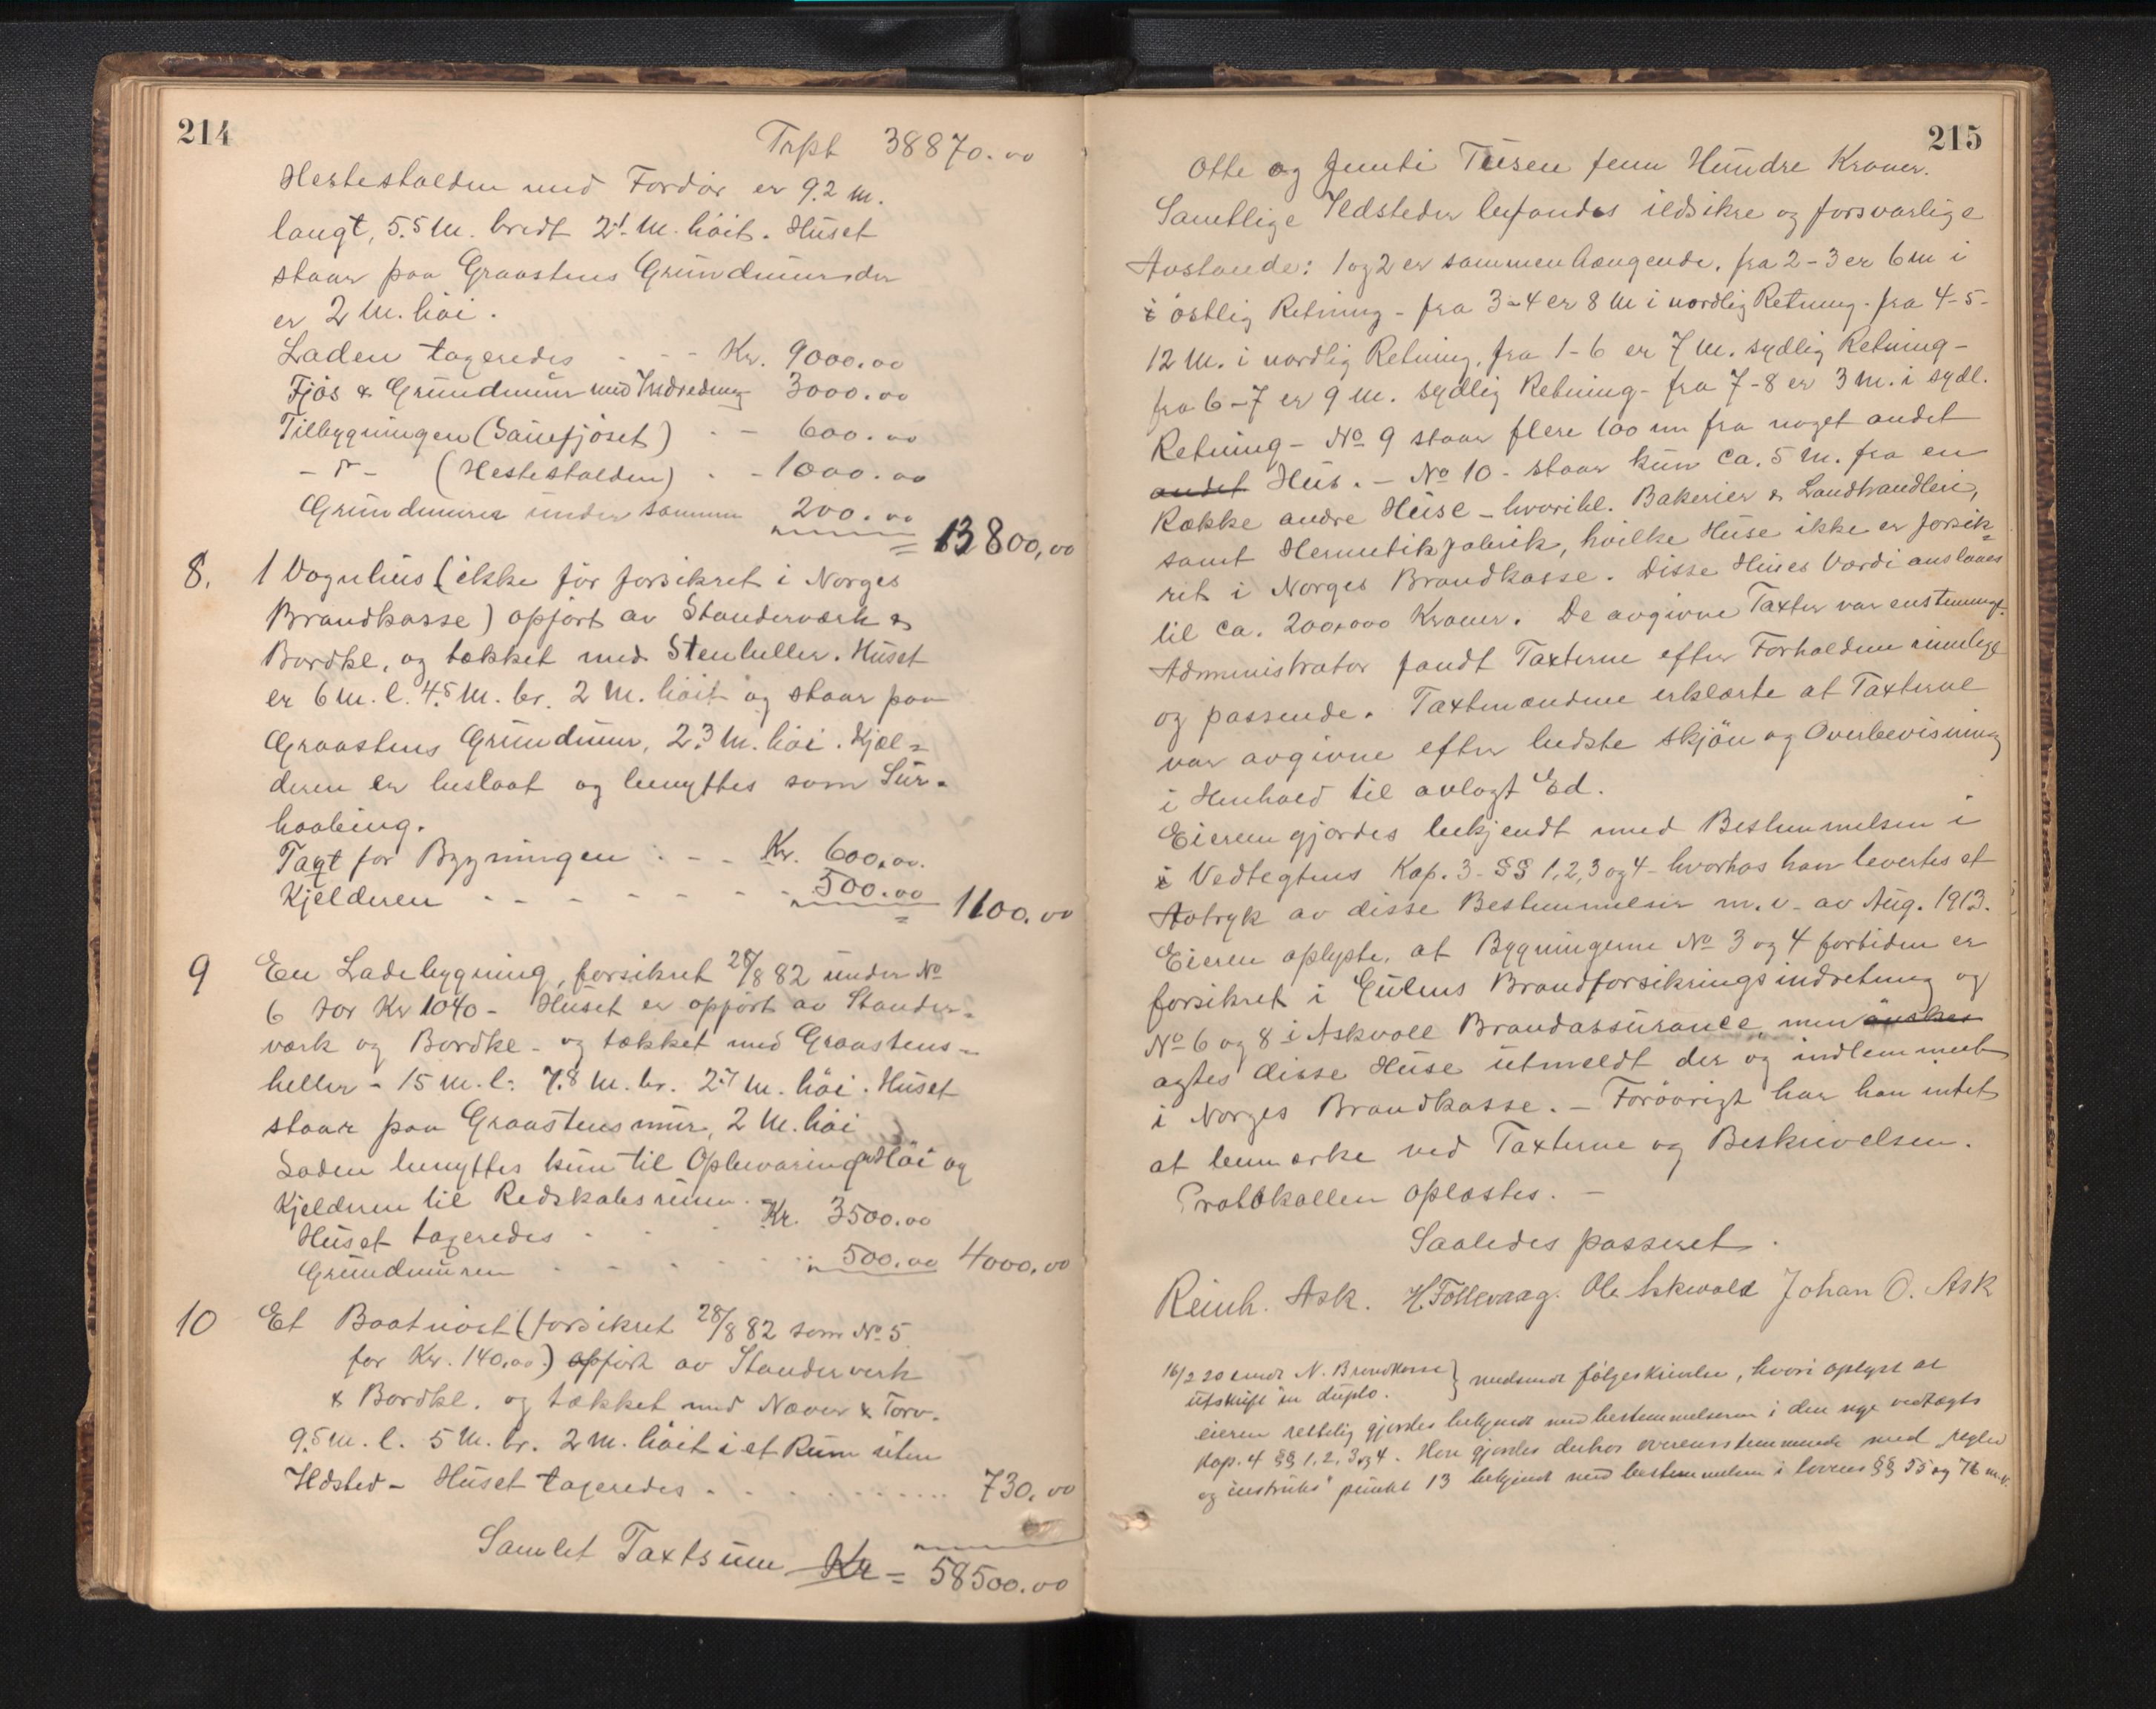 214
Trpt 38870.00
Hestestalden med Fordør er 9.2 M.
langt, 5.5 M. bredt 2.1 M. höit. Huset
staar paa Graastens Grundmur der
er 2 M. höi.
Laden taxeredes - - - Kr. 9000.00
Fjös & Grundmur med Indredning 3000.00
Tilbygningen (Sauefjöset) - - 600.00
- " - (Hestestalden) - - 1000.00
Grundmuren under samme 200.00
= 13800,00
8. 1 Vognhus (ikke för forsikret i Norges
Brandkasse) opfört av Standerværk &
Bordkl. og tækket med Stenheller. Huset
er 6 M. l. 4.5 M. br. 2 M. höit og staar paa
Graastens Grundmur, 2.3 M. höi. Kjæl=
deren er beslaat og benyttes som Sur-
haabing.
Taxt for Bygningen : - - Kr. 600,00.
Kjelderen - - - - - - 500.00
= 1100.00
9 En Ladebygning, forsikret 28/8 82 under No
6 for Kr 1040 - Huset er opfört av Stander-
værk og Bordkl - og tækket med Graastens-
heller - 15 M. l: 7.8 M. br. 2.7 M. höi. Huset
staar paa Graastensmur, 2 M. höi
Laden benyttes kun til Opbevaring av Höi og
Kjelderen til Redskabsrum.
Huset taxeredes - - - Kr. 3500.00
Grundmuren - - - - - " 500.00 4000.00
10 Et Baatnöst (forsikret 28/8 82 som No 5
for Kr. 140.00) opfört av Standerverk
& Bordkl. og tækket med Næver & Torv.
9.5 M. l. 5 M. br. 2 M. höit i et Rum uten
Ildsted - Huset taxeredes - - - - 730.00
Samlet Taxtsum Kr = 58500.00
215
Otte og femti Tusen fem Hundre Kroner.
Samtlige Ildsteder befandes ildsikre og forsvarlige
Avstande: 1 og 2 er sammenhængende. fra 2 - 3 er 6 m i
i östlig Retning - fra 3 - 4 er 8 M i nordlig Retning - fra 4 - 5 -
12 M. i nordlig Retning, fra 1 - 6 er 7 M. sydlig Retning -
fra 6 - 7 er 9 M. sydlig Retning - fra 7 - 8 er 3 M. i sydl.
Retning - No 9 staar flere 100 m fra noget andet
andet Hus. - No 10 - staar kun ca. 5 M. fra en
Række andre Huse - hvoribl. Bakerier & Landhandleri,
samt Hermetikfabrik, hvilke Huse ikke er forsik=
ret i Norges Brandkasse. Disse Huses Værdi anslaaes
til ca. 200.000 Kroner. De avgivne Taxter var enstemmigt.
Administrator fandt Taxterne efter Forholdene rimelige
og passende. Taxtmændene erklærte at Taxterne
var avgivne efter bedste skjön og Overbevisning
i Henhold til avlagt Ed.
Eieren gjordes bekjendt med Bestemmelsen i
i Vedtegtens Kap. 3 - §§ 1, 2, 3 og 4 - hvorhos han levertes et
Avtryk av disse Bestemmelser m. v. av Aug. 1913.
Eieren oplyste, at Bygningerne No 3 og 4 fortiden er
forsikret i Gulens Brandforsikringsindretning og
No 6 og 8 i Askvoll Brandassurance, men önskes
agtes disse Huse utmeldt der og indlemmet
i Norges Brandkasse. - Forövrigt har han intet
at bemærke ved Taxterne og Beskrivelsen.
Protokollen oplæstes. -
Saaledes passeret.
Reinh. Ask. H. Follevaag. Ole Askvold Johan O. Ask
16/2 20 sendt N. Brandkasse } medsendt fölgeskrivelse, hvori oplyst at
utskrift in duplo.
eieren rettelig gjordes bekjendt med bestemmelserne i den nye vedtægts
Kap. 4 §§ 1, 2, 3 og 4. Han gjordes derhos overensstemmende med "regler
og instruks" punkt 13 bekjendt med bestemmelsen i lovens §§ 55 og 76 m.v.